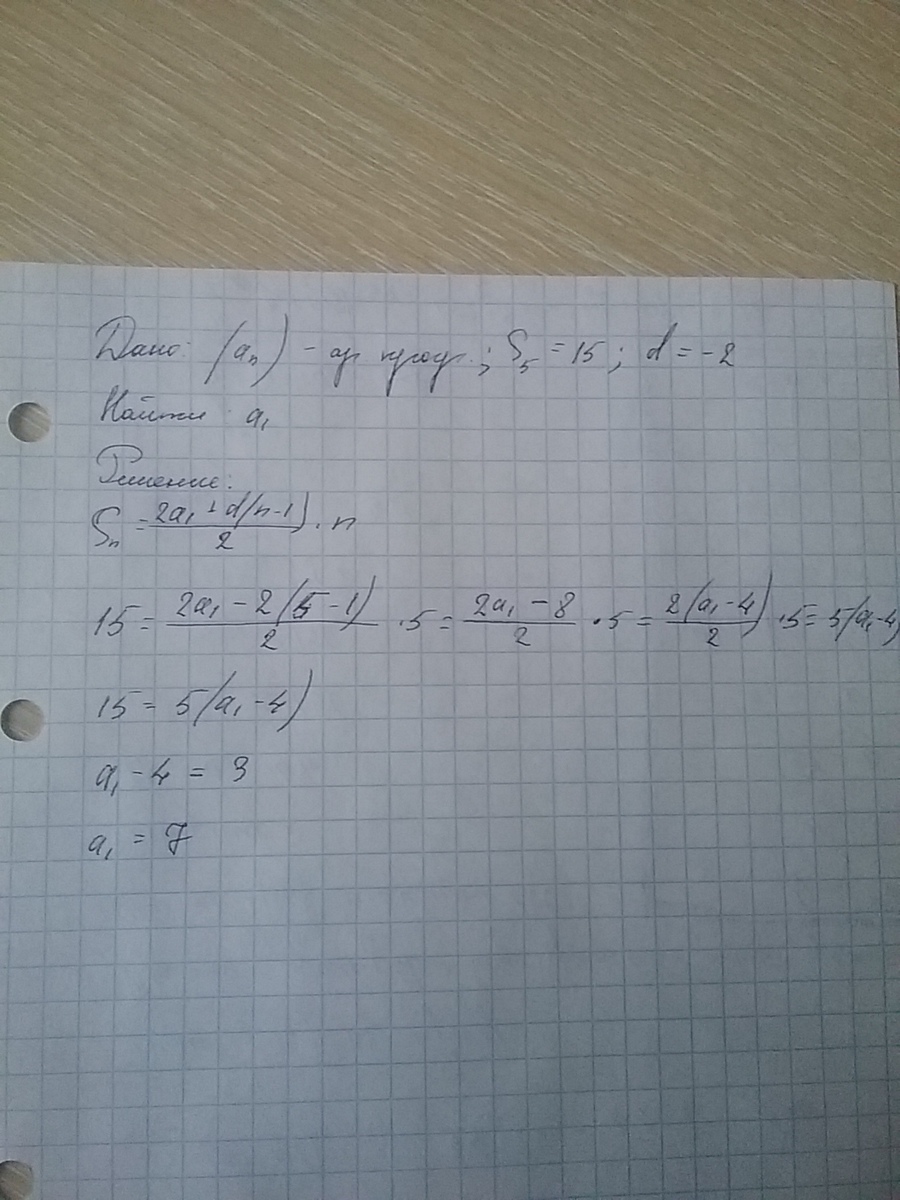 Дано: (aₙ) - ар прогр.; S₅ = 15; d = -2
Найти: a₁
Решение:
Sₙ = (2a₁ + d(n-1))/2 · n
15 = (2a₁ - 2(5-1))/2 · 5 = (2a₁ - 8)/2 · 5 = 2(a₁-4)/2 · 5 = 5(a₁-4)
15 = 5(a₁-4)
a₁ - 4 = 3
a₁ = 7